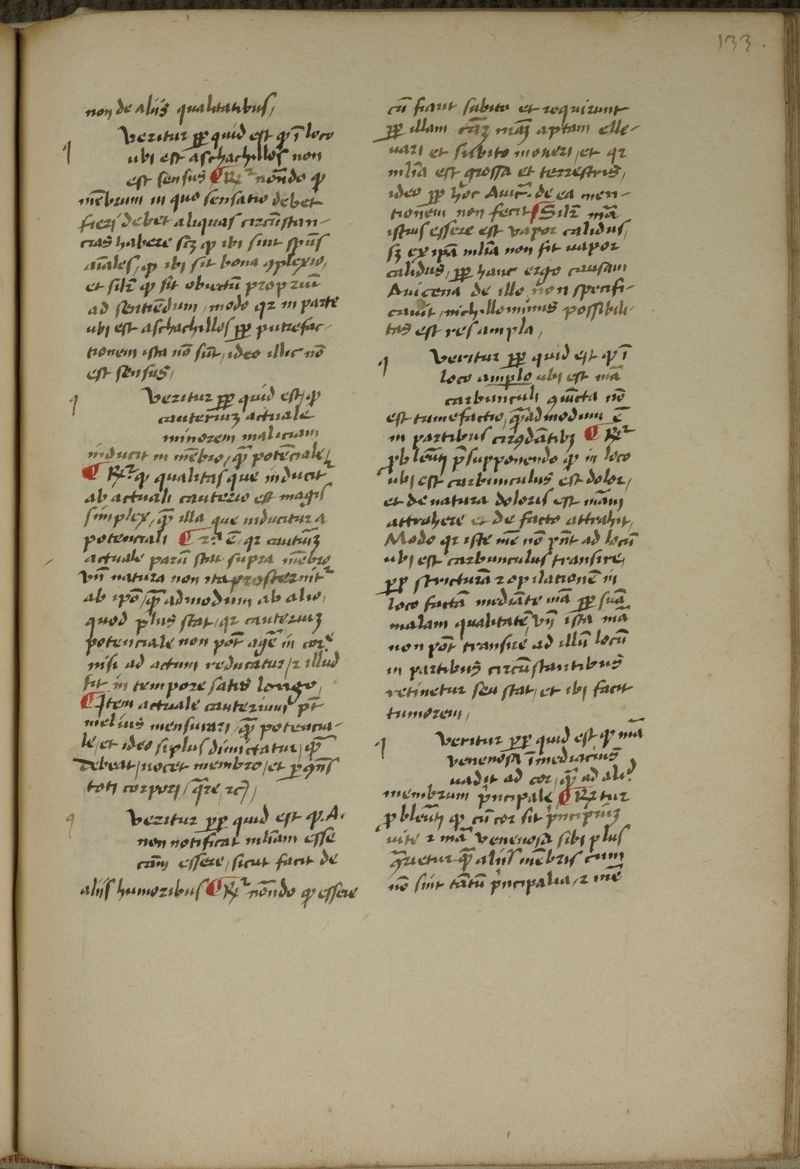 133.
non de aliis qualitatibus,
Veritur ꝑꝑ quid est ꝙ ī loco
ubi est aschachillos non
est sensus ¶ R̃ notādo ꝙ
mēbrum in quo sensatio debet
fieri debet aliquas circūstan-
cias habere scꝫ ꝙ ibi sint spūs
aīales, ꝙ ibi sit bona ꝯplexio,
et silr̄ ꝙ sit
ad sentiēdum, modo qr in parte
ubi est aschachillos ꝑꝑ putrefac-
tionem ista nō sūt, ideo illic nō
est sensus,
Veritur ꝑꝑ quid est, ꝙ
cauteriuꝫ actuale
minorem maliciam
inducit in mēbro, qȝ̄ potēciale,
¶ R̃ ꝙ qualitas que inducit̄
ab actuali cauterio est magis
simplex, qȝ̄ illa que inducitur a
potenciali ¶ rō ē, qr cautiūꝫ
actuale parū stat supra mēbro
vn̄ natura non ita prosternit̄
ab ipō, qȝ̄admodum ab alio,
quod plus stat, qr cauteriuꝫ
potenciale non pōt agē in corꝑe
nisi ad actum reducatur, ⁊ illud
fit in tempore satis longo,
¶ Item actuale cauterium pōt
melius mensurari, qȝ̄ potencia-
le, et ideo si plus dimictatur, qȝ̄
debeat, nocet membro, et ꝑ ꝯn̄s
toti corpori, qre, ⁊c),
Veritur ꝑꝑ quid est ꝙ. A.
non notificat mliam esse
cām essere, sicut facit de
aliis humoribus ¶ R̃ notādo ꝙ essere
cū fiant subito et requirunt
ꝑꝑ illam cāꝫ māꝫ aptam elle-
vari et subito moveri, et qr
mlīa est grossa et terrestris,
ideo ꝑꝑ hoc Avic̄. de ea men-
tionem non fecit, Silr̄ mā
istius essere est vapor calidus,
sꝫ ex ipā mlīa non fit vapor
calidus, ꝑꝑ hanc ergo causam
Avicena de illo non specifi-
cavit, nichillominus possibili-
tas est res ampla,
Veritur ꝑꝑ quid est ꝙ ī
loco amplo ubi est mā
carbunculi nō
est tumefactio, qȝ̄admodum ē
in partibus circūdātibꝫ ¶ R̃
ꝓbleūti p̄supponendo ꝙ in loco
ubi est carbunculus est dolor,
et de natura doloris est mām
attrahere et de facto attrahit,
Modo qr iste mē nō pn̄t ad locū
ubi est carbunculus transire,
ꝑꝑ stricturā ⁊ opilationē in
loco factā mediāte mā ꝑꝑ suā
malam qualitatē, vn̄ ista mā
non pōt transire ad illū locū
in partibus circūstantibus
retinetur seu stat, et ibi facit
tumorem,
Veritur ꝑꝑ quid est ꝙ mā
venenosa īmediacius
vadit ad cor, qȝ̄ ad aliud
membrum p̄ncipale, ¶ R̃tur
ꝓbleūti ꝙ cū cor sit p̄ncipiuꝫ
vite ⁊ mā venenosa sibi plus
ꝯ̄rietur qȝ̄ aliis mēbris cum
nō sint tātū p̄ncipalia, ⁊ mē